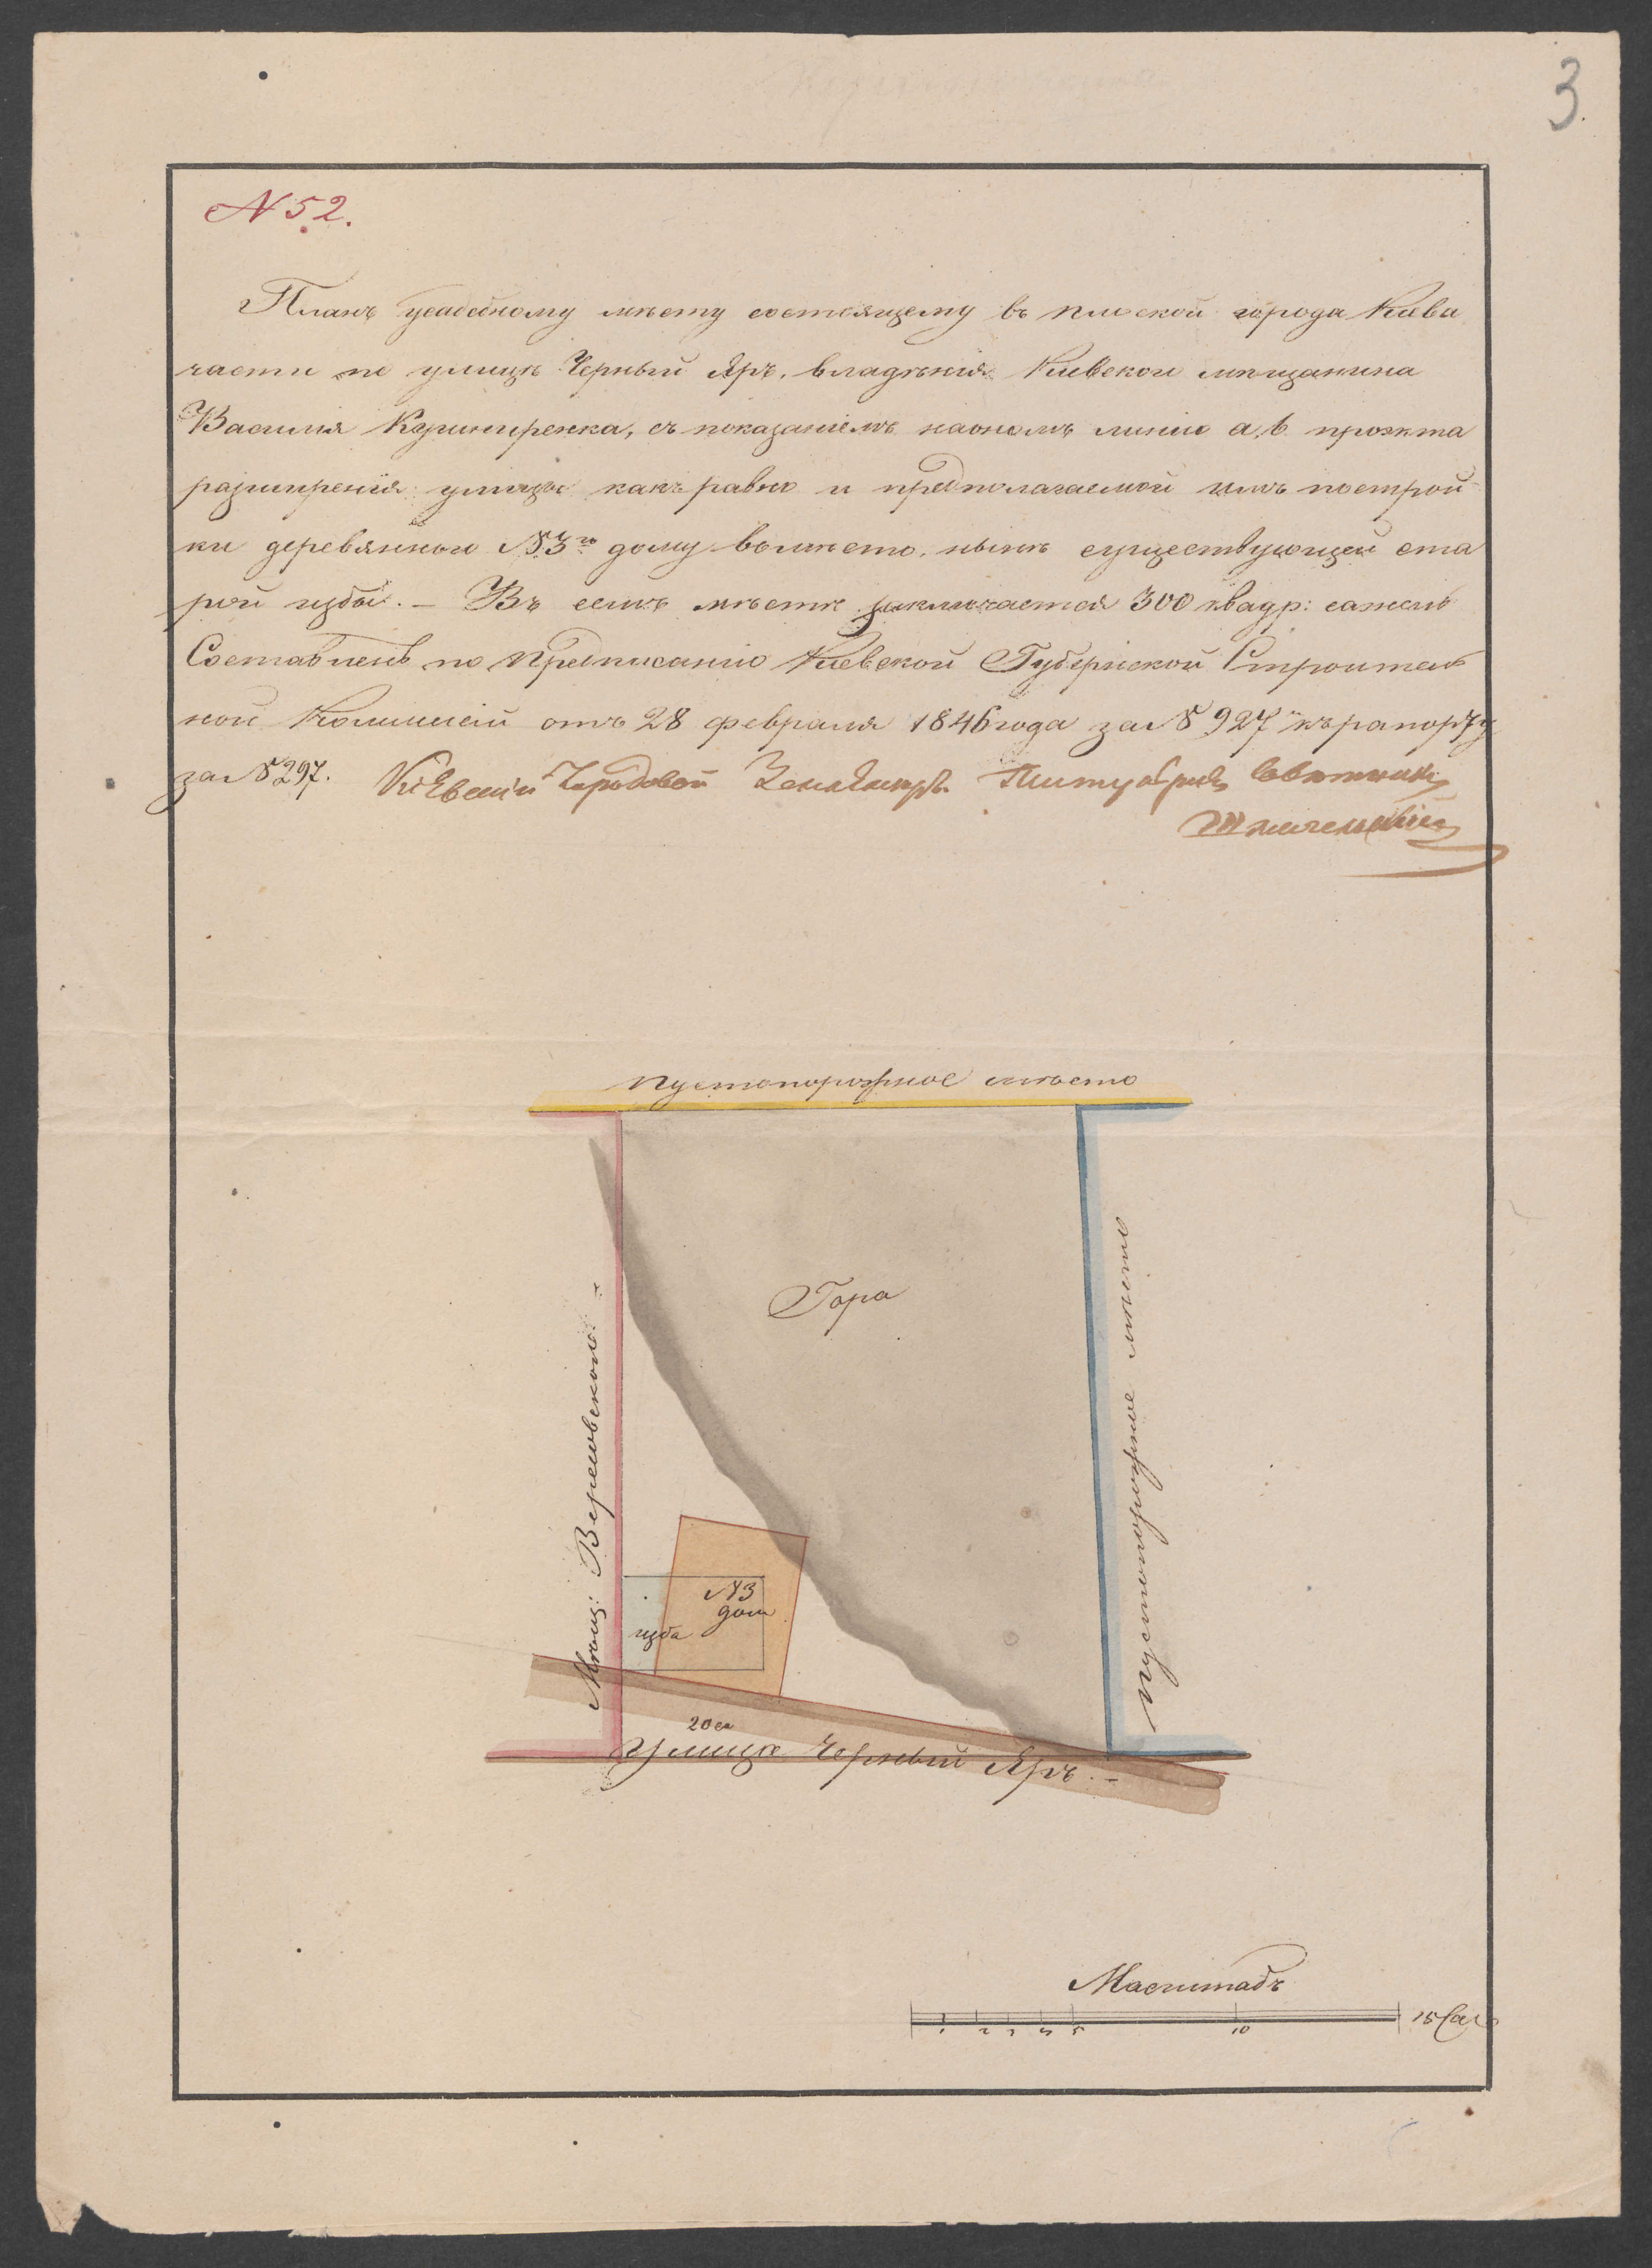 3.
N 52.
Планъ усадебному мѣсту состоящему въ плоской города Киева
части по улицѣ Черный Яръ, владѣнія Киевского мѣщанина
Василия с показаніемъ наономъ линіи а, b. проэкта
разширенія улицы какъ равно и предполагаемой имъ построй-
ки деревянного №3го дому вьмѣсто, нынѣ существующей ста
рой избы. – Въ семъ мѣстѣ заключается 300 квадр: сажень
Составленъ по Предписанію Киевской Губернской Строитель
ной Коммисіи отъ 28 февраля 1846 года за №927 къ рапорту
за №297. Киевскій Городовой Землемеръ Титулярный Советникъ
Пустопорожное мѣсто
Гора
Мѣщ:
Пустопорожное мѣсто
№3
домъ
изба
20 са
Улица Черный Яръ. –
Масштабъ
1 2 3 4 5 10 15 Саж